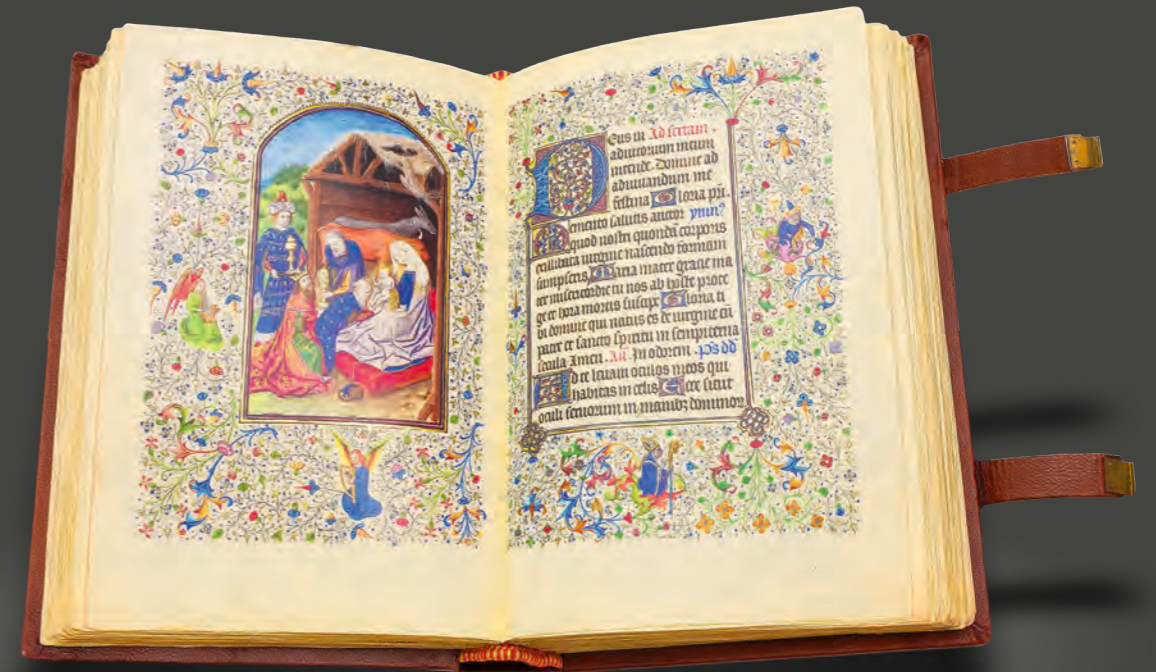 Eus in Ad sextam.
adiutorium meum
intende. Domine ad
adiuuandum me
festina Gloria pri.
Memento salutis auctor ymn9
quod nostri quondā corporis
exillibata uirgine nascendo formam
sumpseris Maria mater gracie ma
ter misericordie tu nos ab hoste prote
ge et hora mortis suscipe Gloria ti
bi domine qui natus es de uirgine cū
patre et sancto spiritu in sempiterna
secula Amen. An In odorem. Ps dd
Ad te leuaui oculos meos qui
habitas in celis Ecce sicut
oculi seruorum in manibz dominor